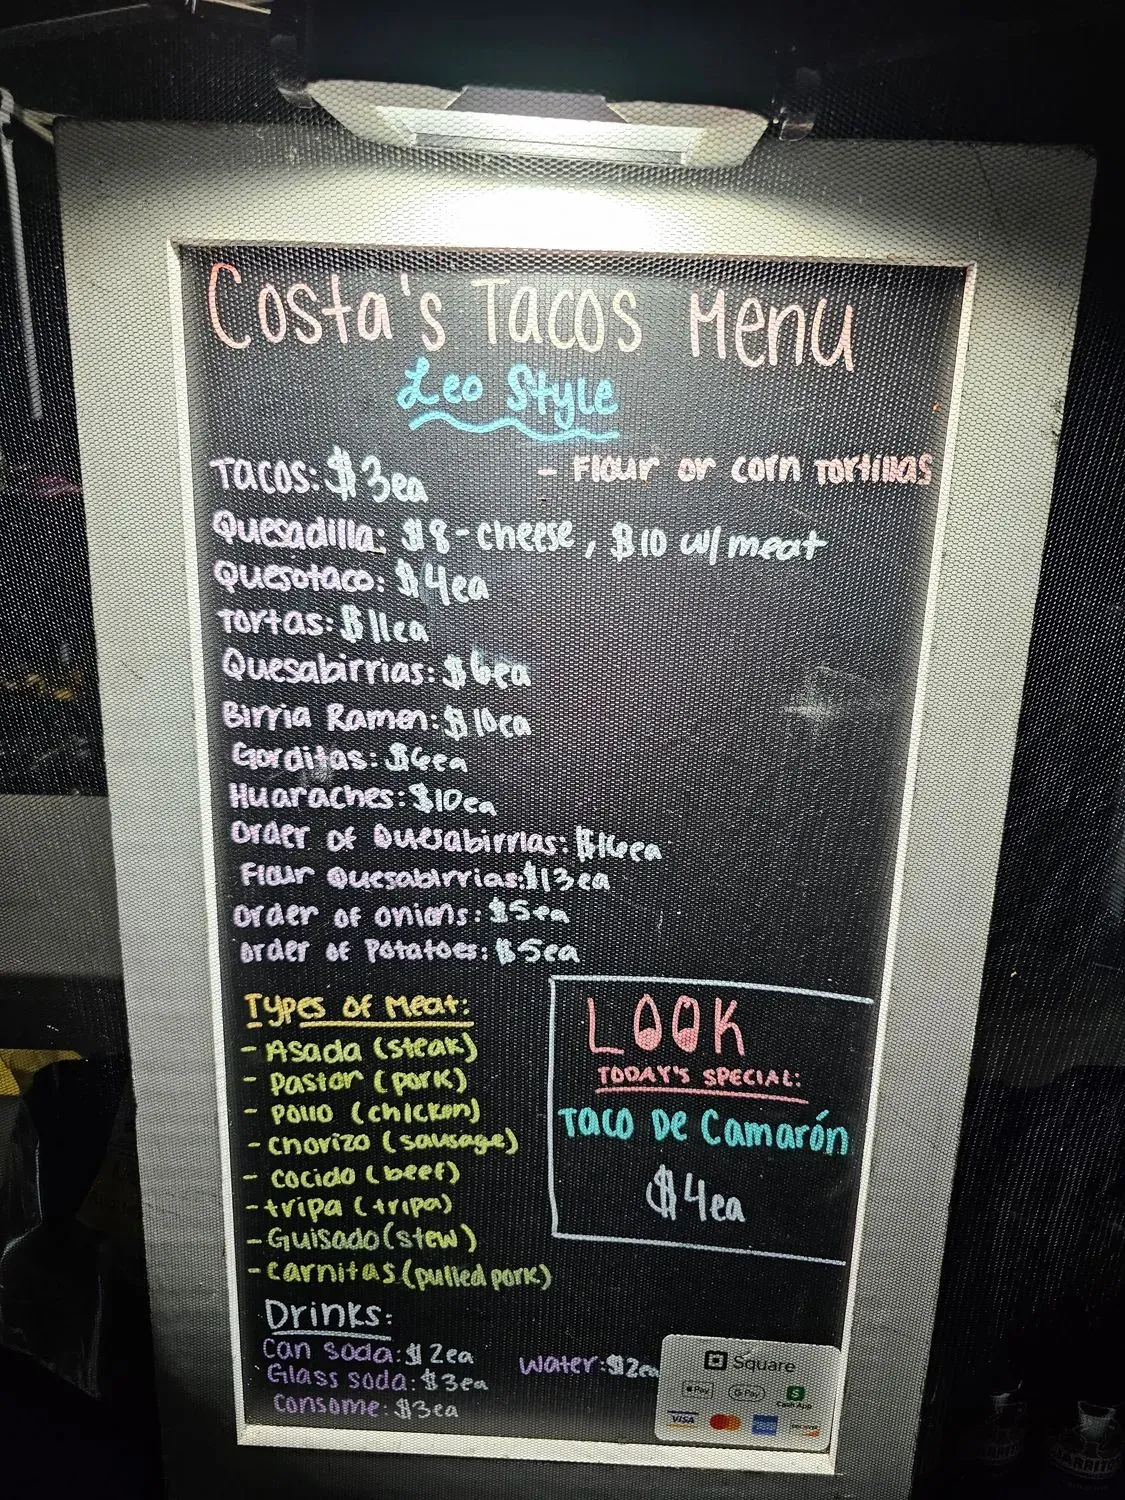 Costa's Tacos Menu
Leo Style
Tacos: $3ea - Flour or corn Tortillas
Quesadilla: $8-cheese, $10 w/meat
Quesotaco: $4ea
Tortas: $11ea
Quesabirrias: $6ea
Birria Ramen: $10ea
Gorditas: $6ea
Huaraches: $10ea
Order of Quesabirrias: $16ea
Flour Quesabirrias: $13ea
Order of onions: $5ea
Order of Potatoes: $5ea
Types of Meat:
- Asada (steak)
- Pastor (pork)
- Pollo (chicken)
- Chorizo (sausage)
- Cocido (beef)
- tripa (tripa)
- Guisado (stew)
- Carnitas (pulled pork)
LOOK
TODAY'S SPECIAL:
Taco De Camarón
$4ea
Drinks:
Can soda: $2ea
Glass soda: $3ea
Consome: $3ea
Water: $2ea
Square
Pay G Pay Cash App
VISA